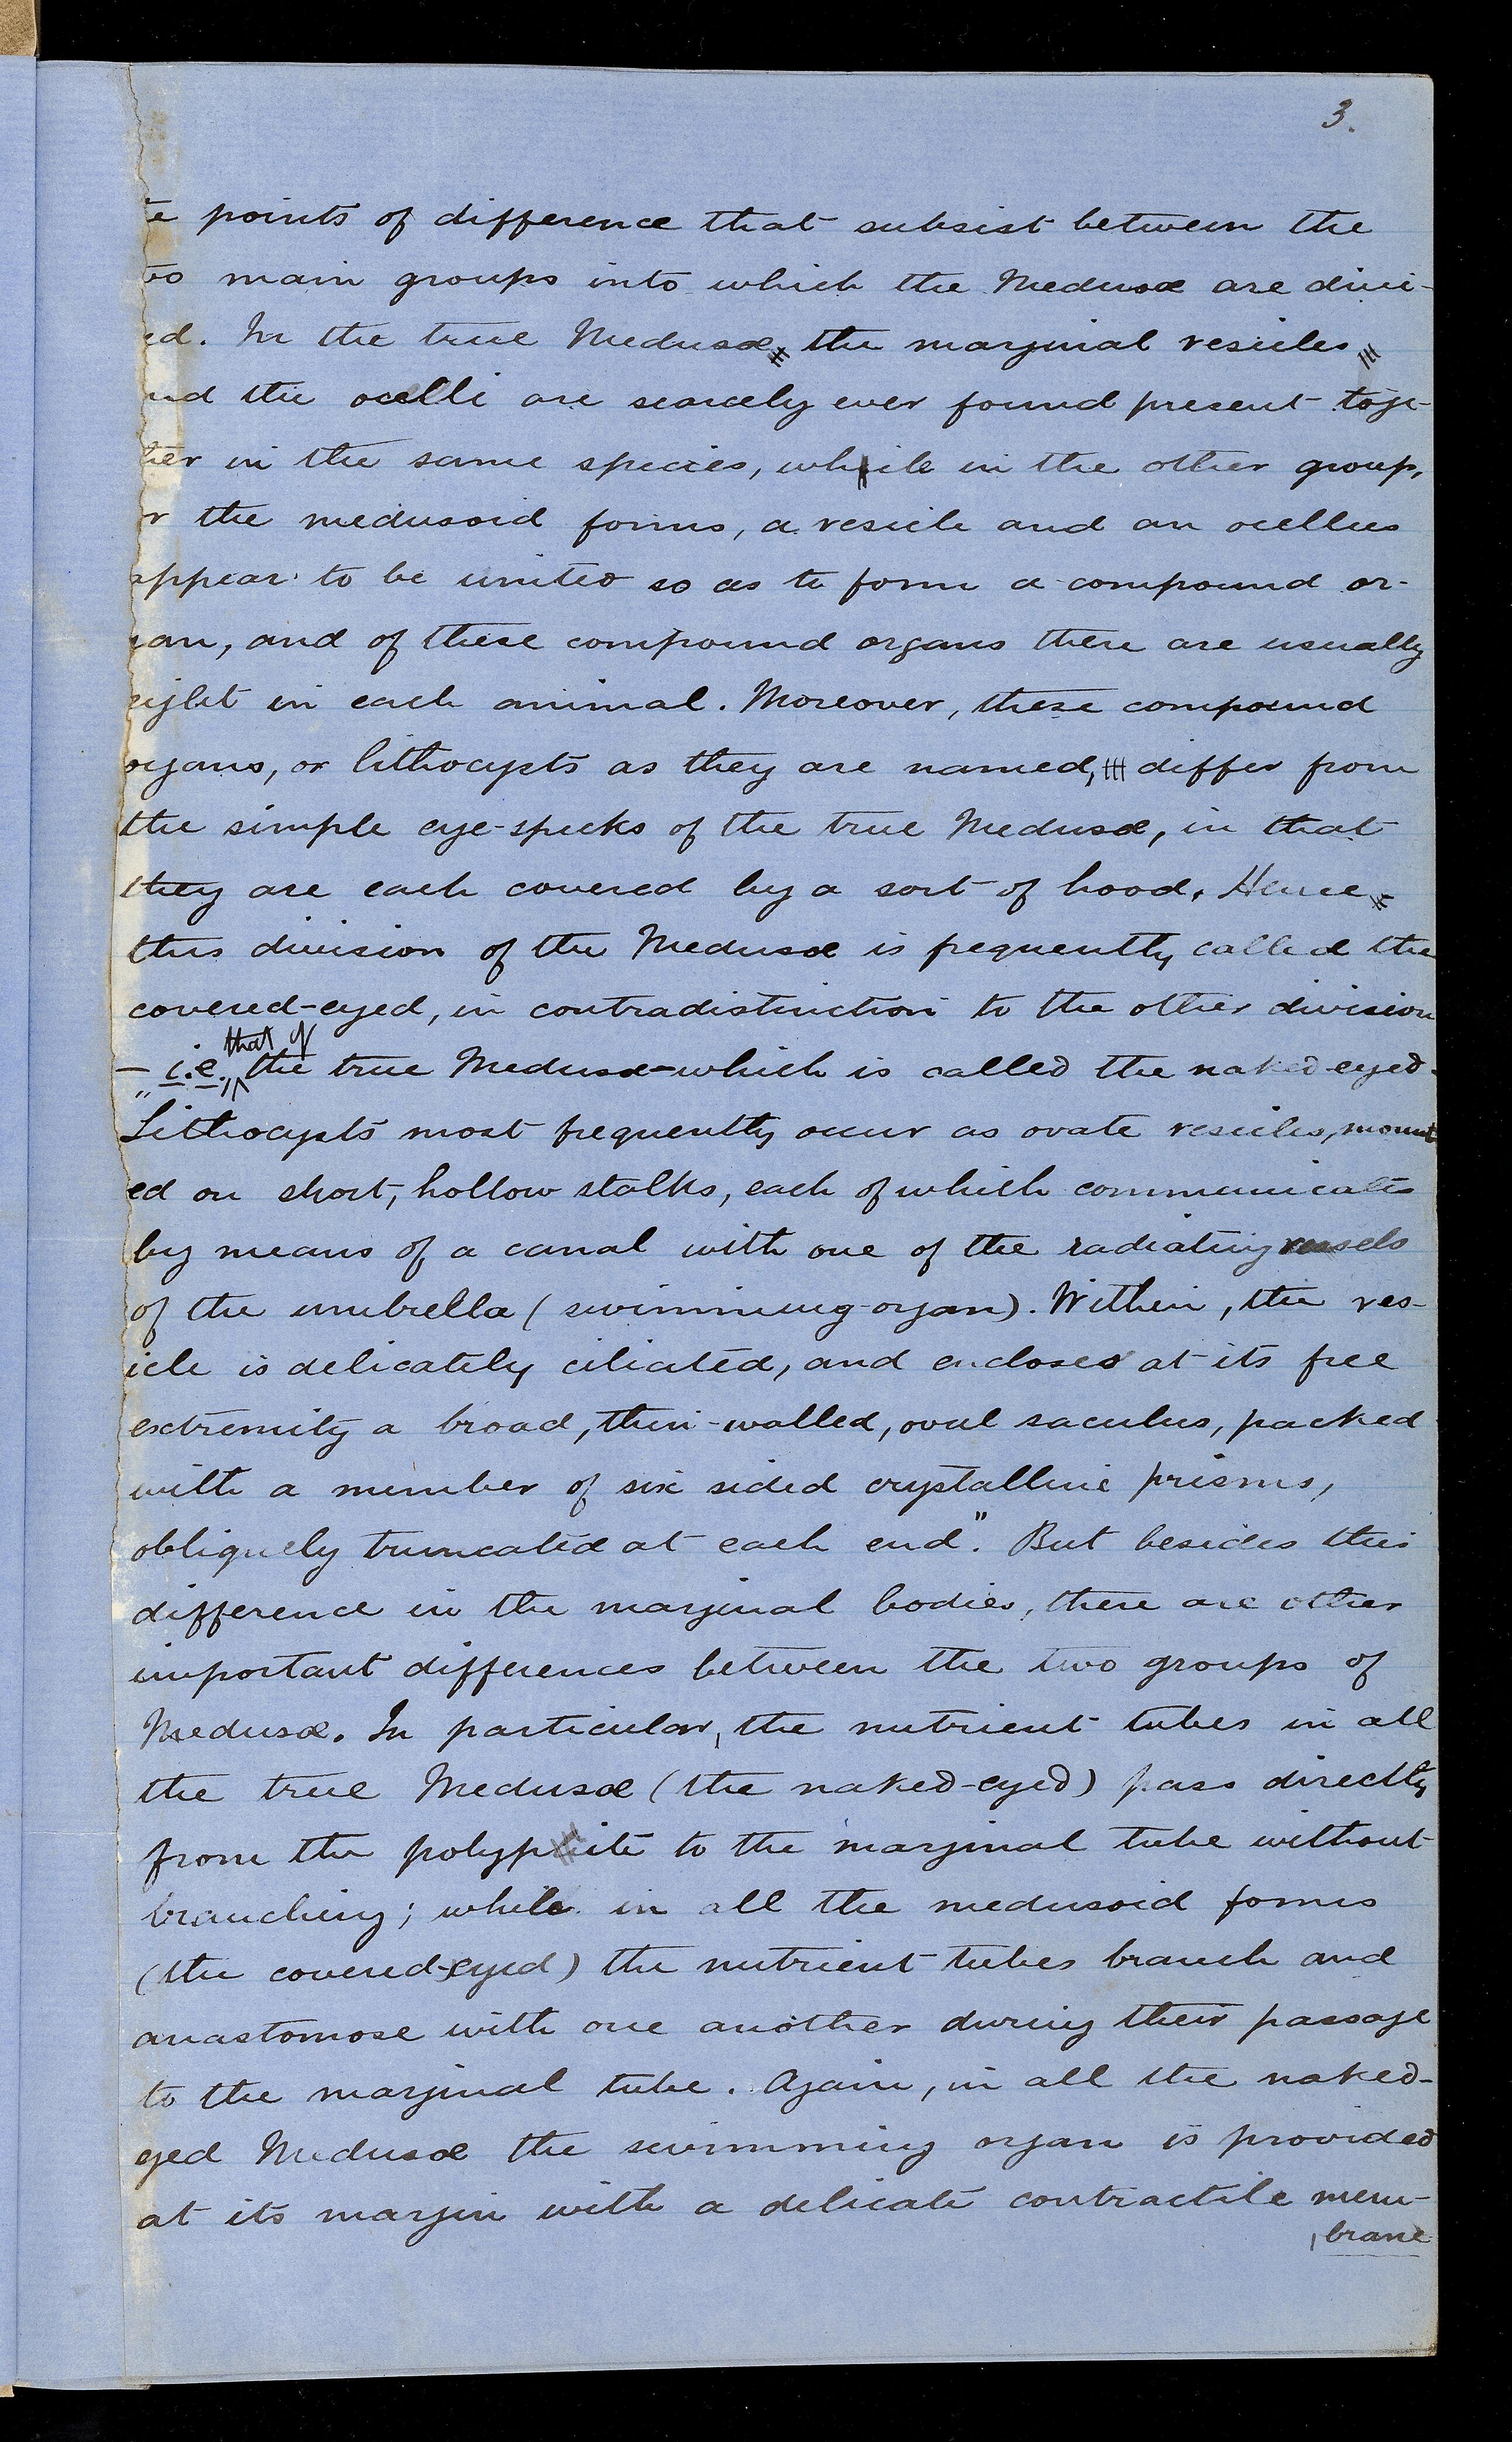 3.
e points of difference that subsist between the
o main groups into which the Medusæ are divi-
ed. In the true Medusæ the marginal vesicles
nd the ocelli are scarcely ever found present toge-
her in the same species, while in the other group,
r the medusoid forms, a vesicle and an ocellus
appear to be united so as to form a compound or-
gan, and of these compound organs there are usually
eight in each animal. Moreover, these compound
organs, or lithocysts as they are named, differ from
the simple eye-specks of the true Medusæ, in that
they are each covered by a sort of hood. Hence
this division of the Medusæ is frequently called the
covered-eyed, in contradistinction to the other division
that of
— i.e., the true Medusæ—which is called the naked-eyed.
"Lithocysts most frequently occur as ovate vesicles, mount
ed on short, hollow stalks, each of which communicates
by means of a canal with one of the radiating vessels
of the umbrella (swimming-organ). Within, the ves-
icle is delicately ciliated, and encloses at its free
extremity a broad, thin-walled, oval saculus, packed
with a number of six sided crystalline prisms,
obliquely truncated at each end". But besides this
difference in the marginal bodies, there are other
important differences between the two groups of
Medusæ. In particular, the nutrient tubes in all
the true Medusæ (the naked-eyed) pass directly
from the polypite to the marginal tube without
branching; while in all the medusoid forms
(the covered-eyed) the nutrient tubes branch and
anastomose with one another during their passage
to the marginal tube. Again, in all the naked-
eyed Medusæ the swimming organ is provided
at its margin with a delicate contractile mem-
brane